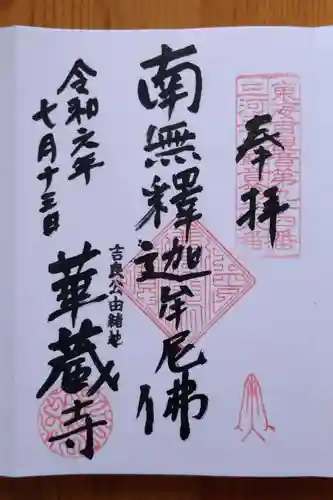 奉拝
南無釋迦牟尼佛
令和六年
七月十三日
吉良公由緒地
華蔵寺